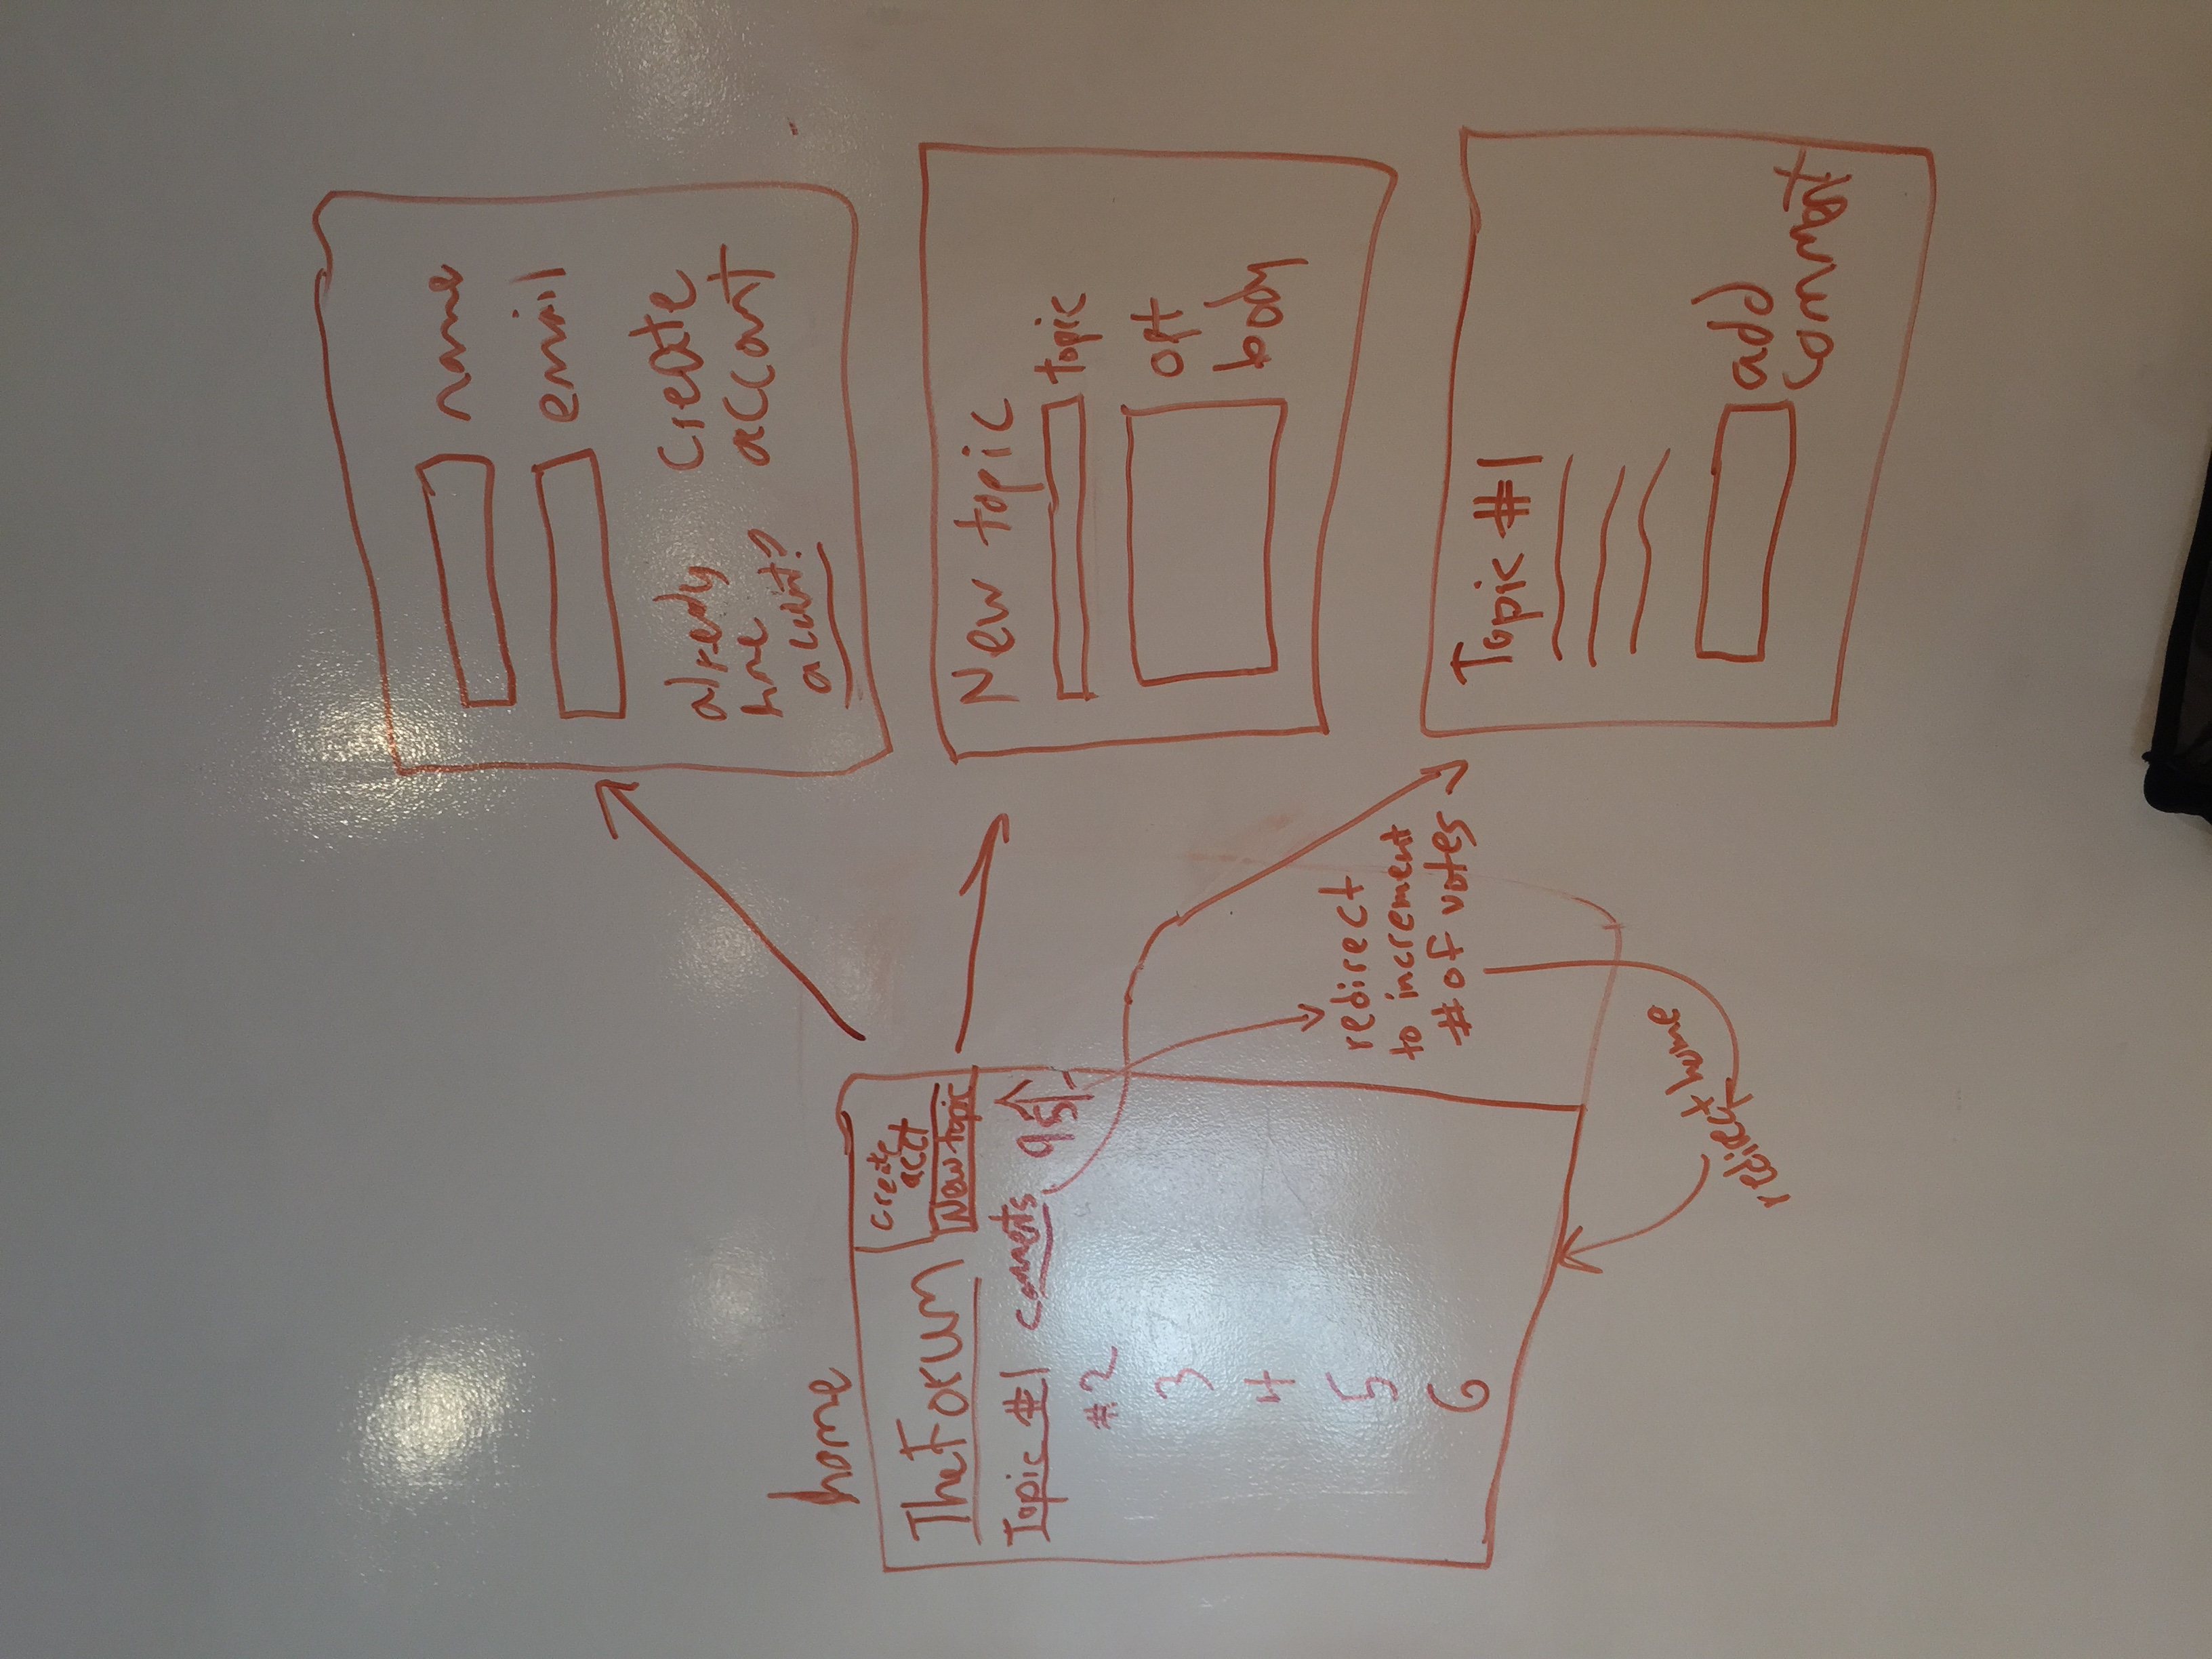 home
TheForum
create
acct
New topic
Topic #1 comments 95
#2
3
4
5
6
redirect
to increment
# of votes
redirect home
name
email
already
have
account?
create
account
New topic
topic
opt
body
Topic #1
add
comment